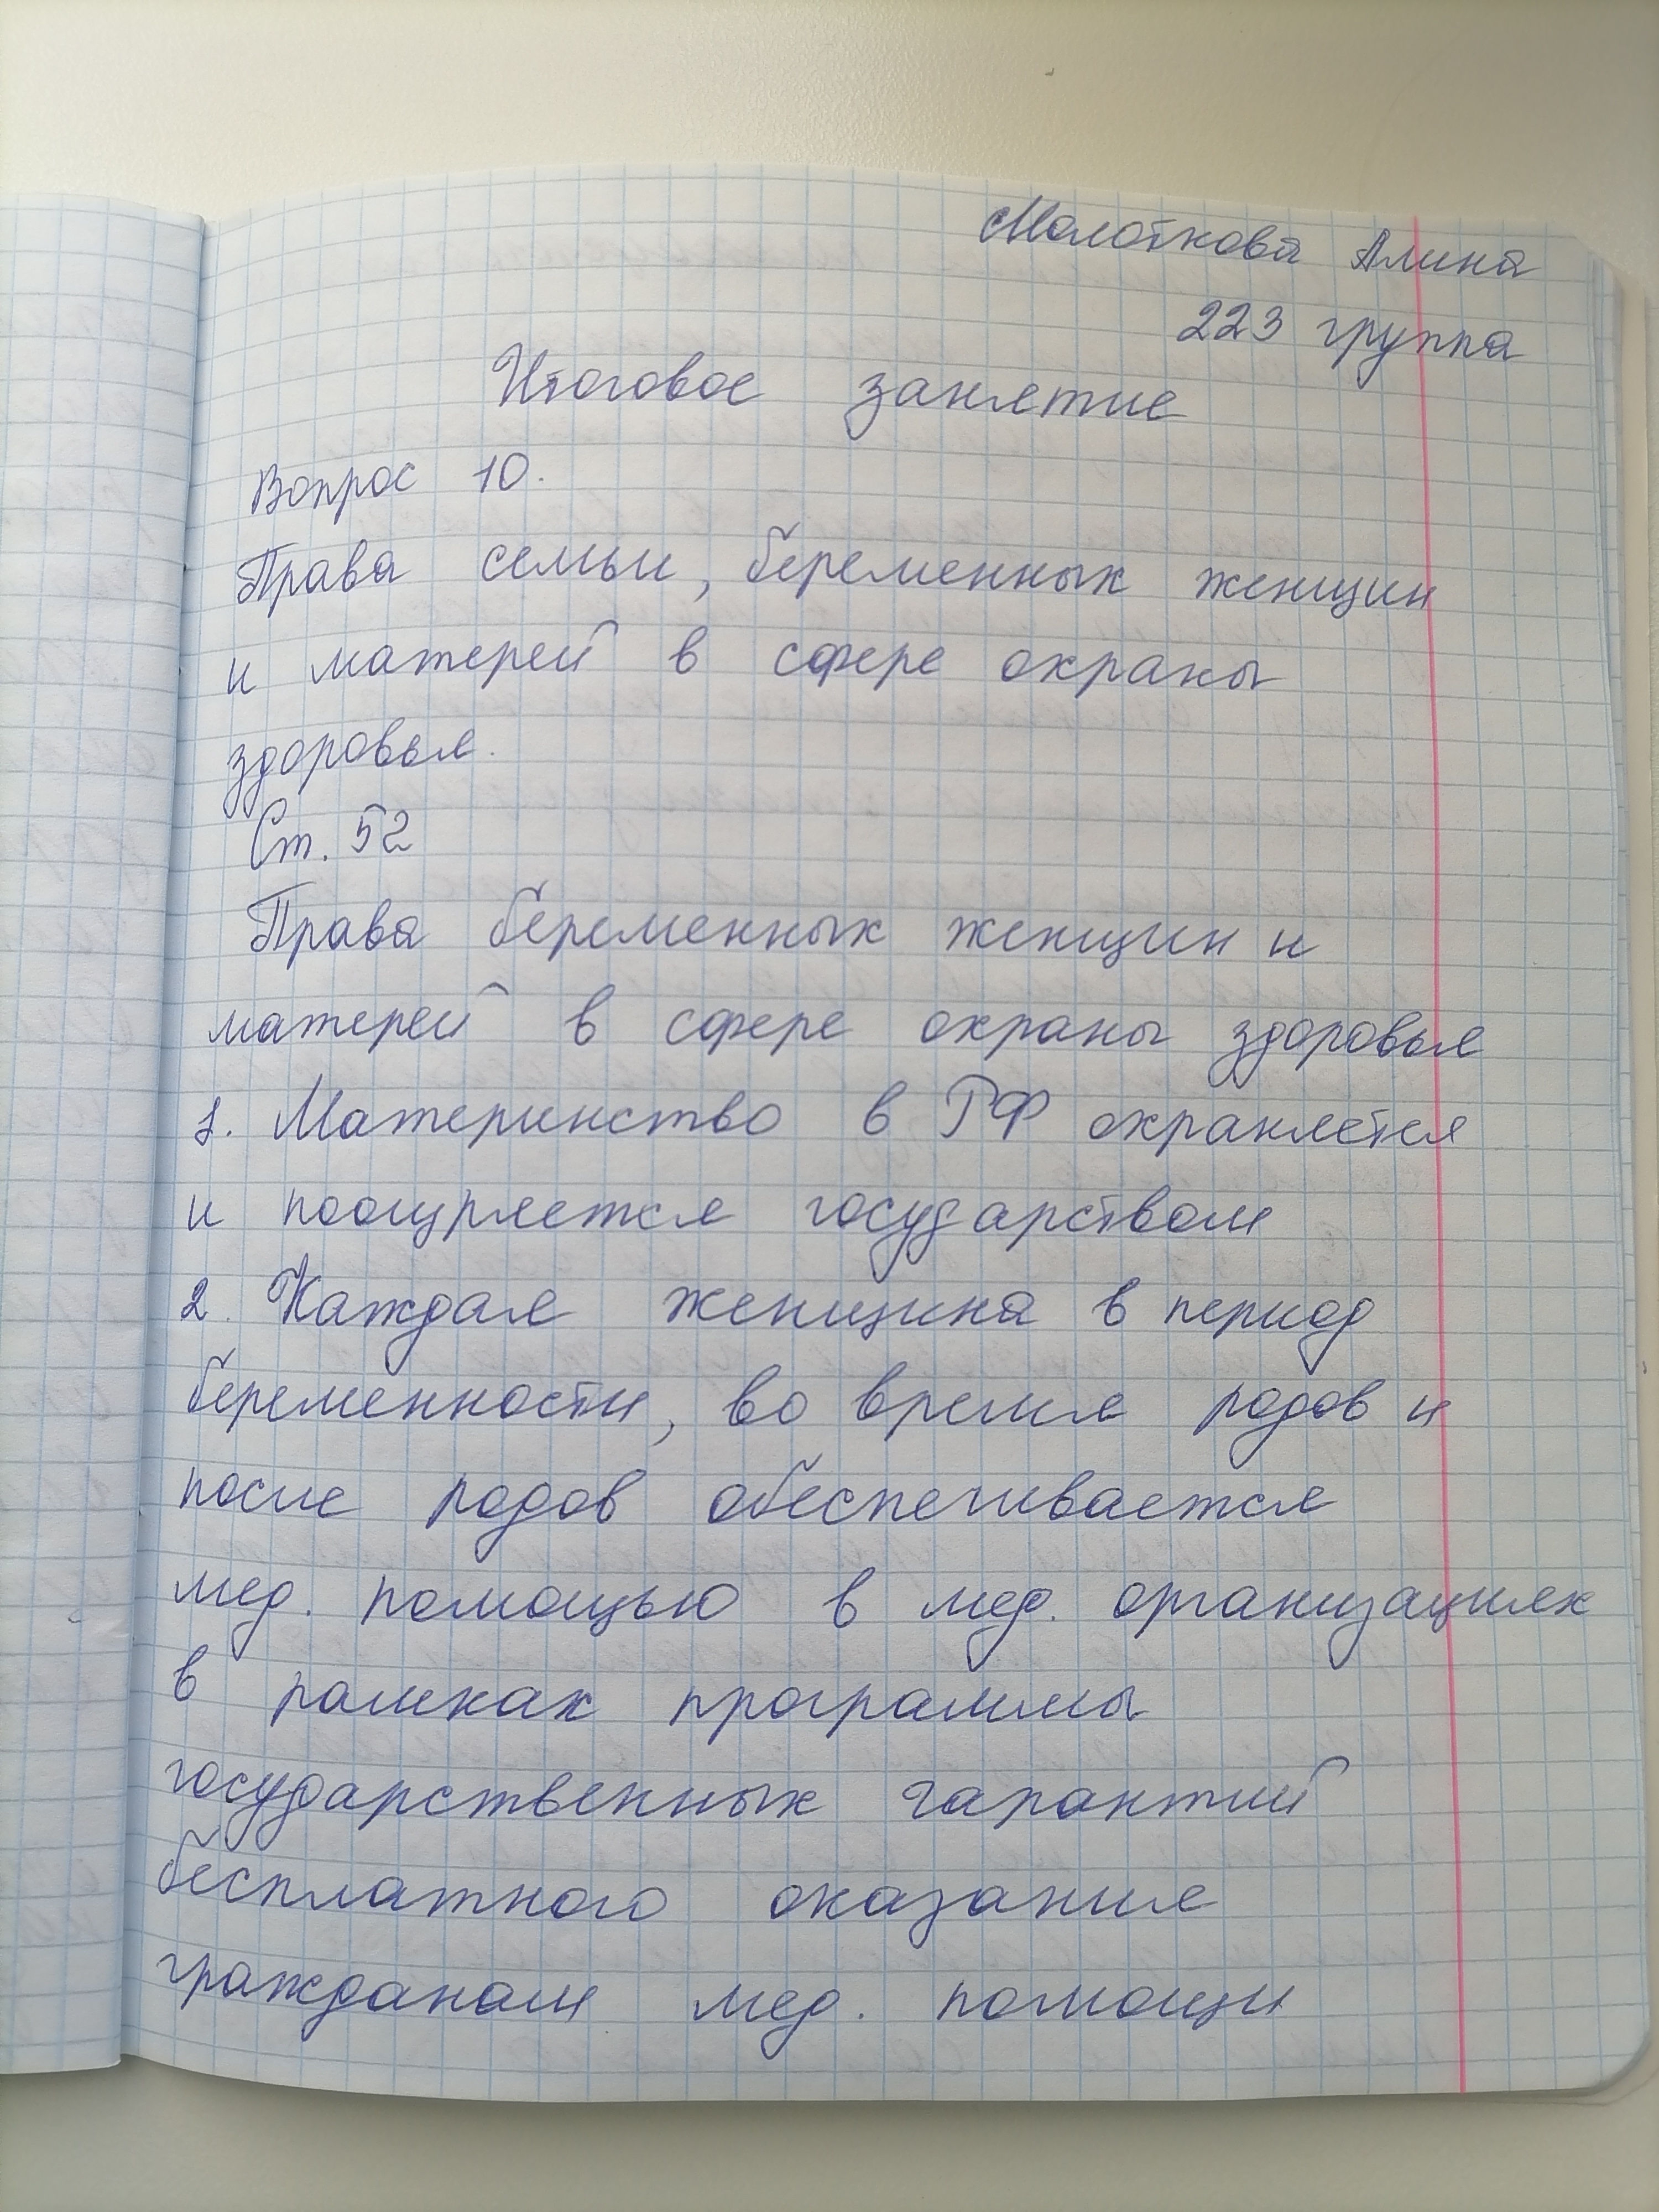 Молоткова Алина
223 группа
Итоговое занятие
Вопрос 10.
Права семьи, беременных женщин
и матерей в сфере охраны
здоровья.
Ст. 52
Права беременных женщин и
матерей в сфере охраны здоровья
1. Материнство в РФ охраняется
и поощряется государством
2. Каждая женщина в период
беременности, во время родов и
после родов обеспечивается
мед. помощью в мед. организациях
в рамках программы
государственных гарантий
бесплатного оказания
гражданам мед. помощи